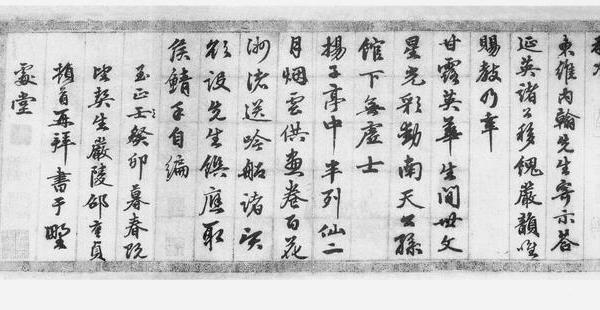 東維內翰先生寄示答
延英諸公愧嚴韻唯
賜教乃幸
甘露英華生間世文
星光彩動南天公孫
館下無虛士
揚子亭中半列仙二
月烟雲供畫卷百花
洲渚送吟船諸
欲設先生饌應取
侯鯖手自編
至正壬癸卯暮春既
望契生嚴陵邵亨貞
頓首再拜書于野
處堂